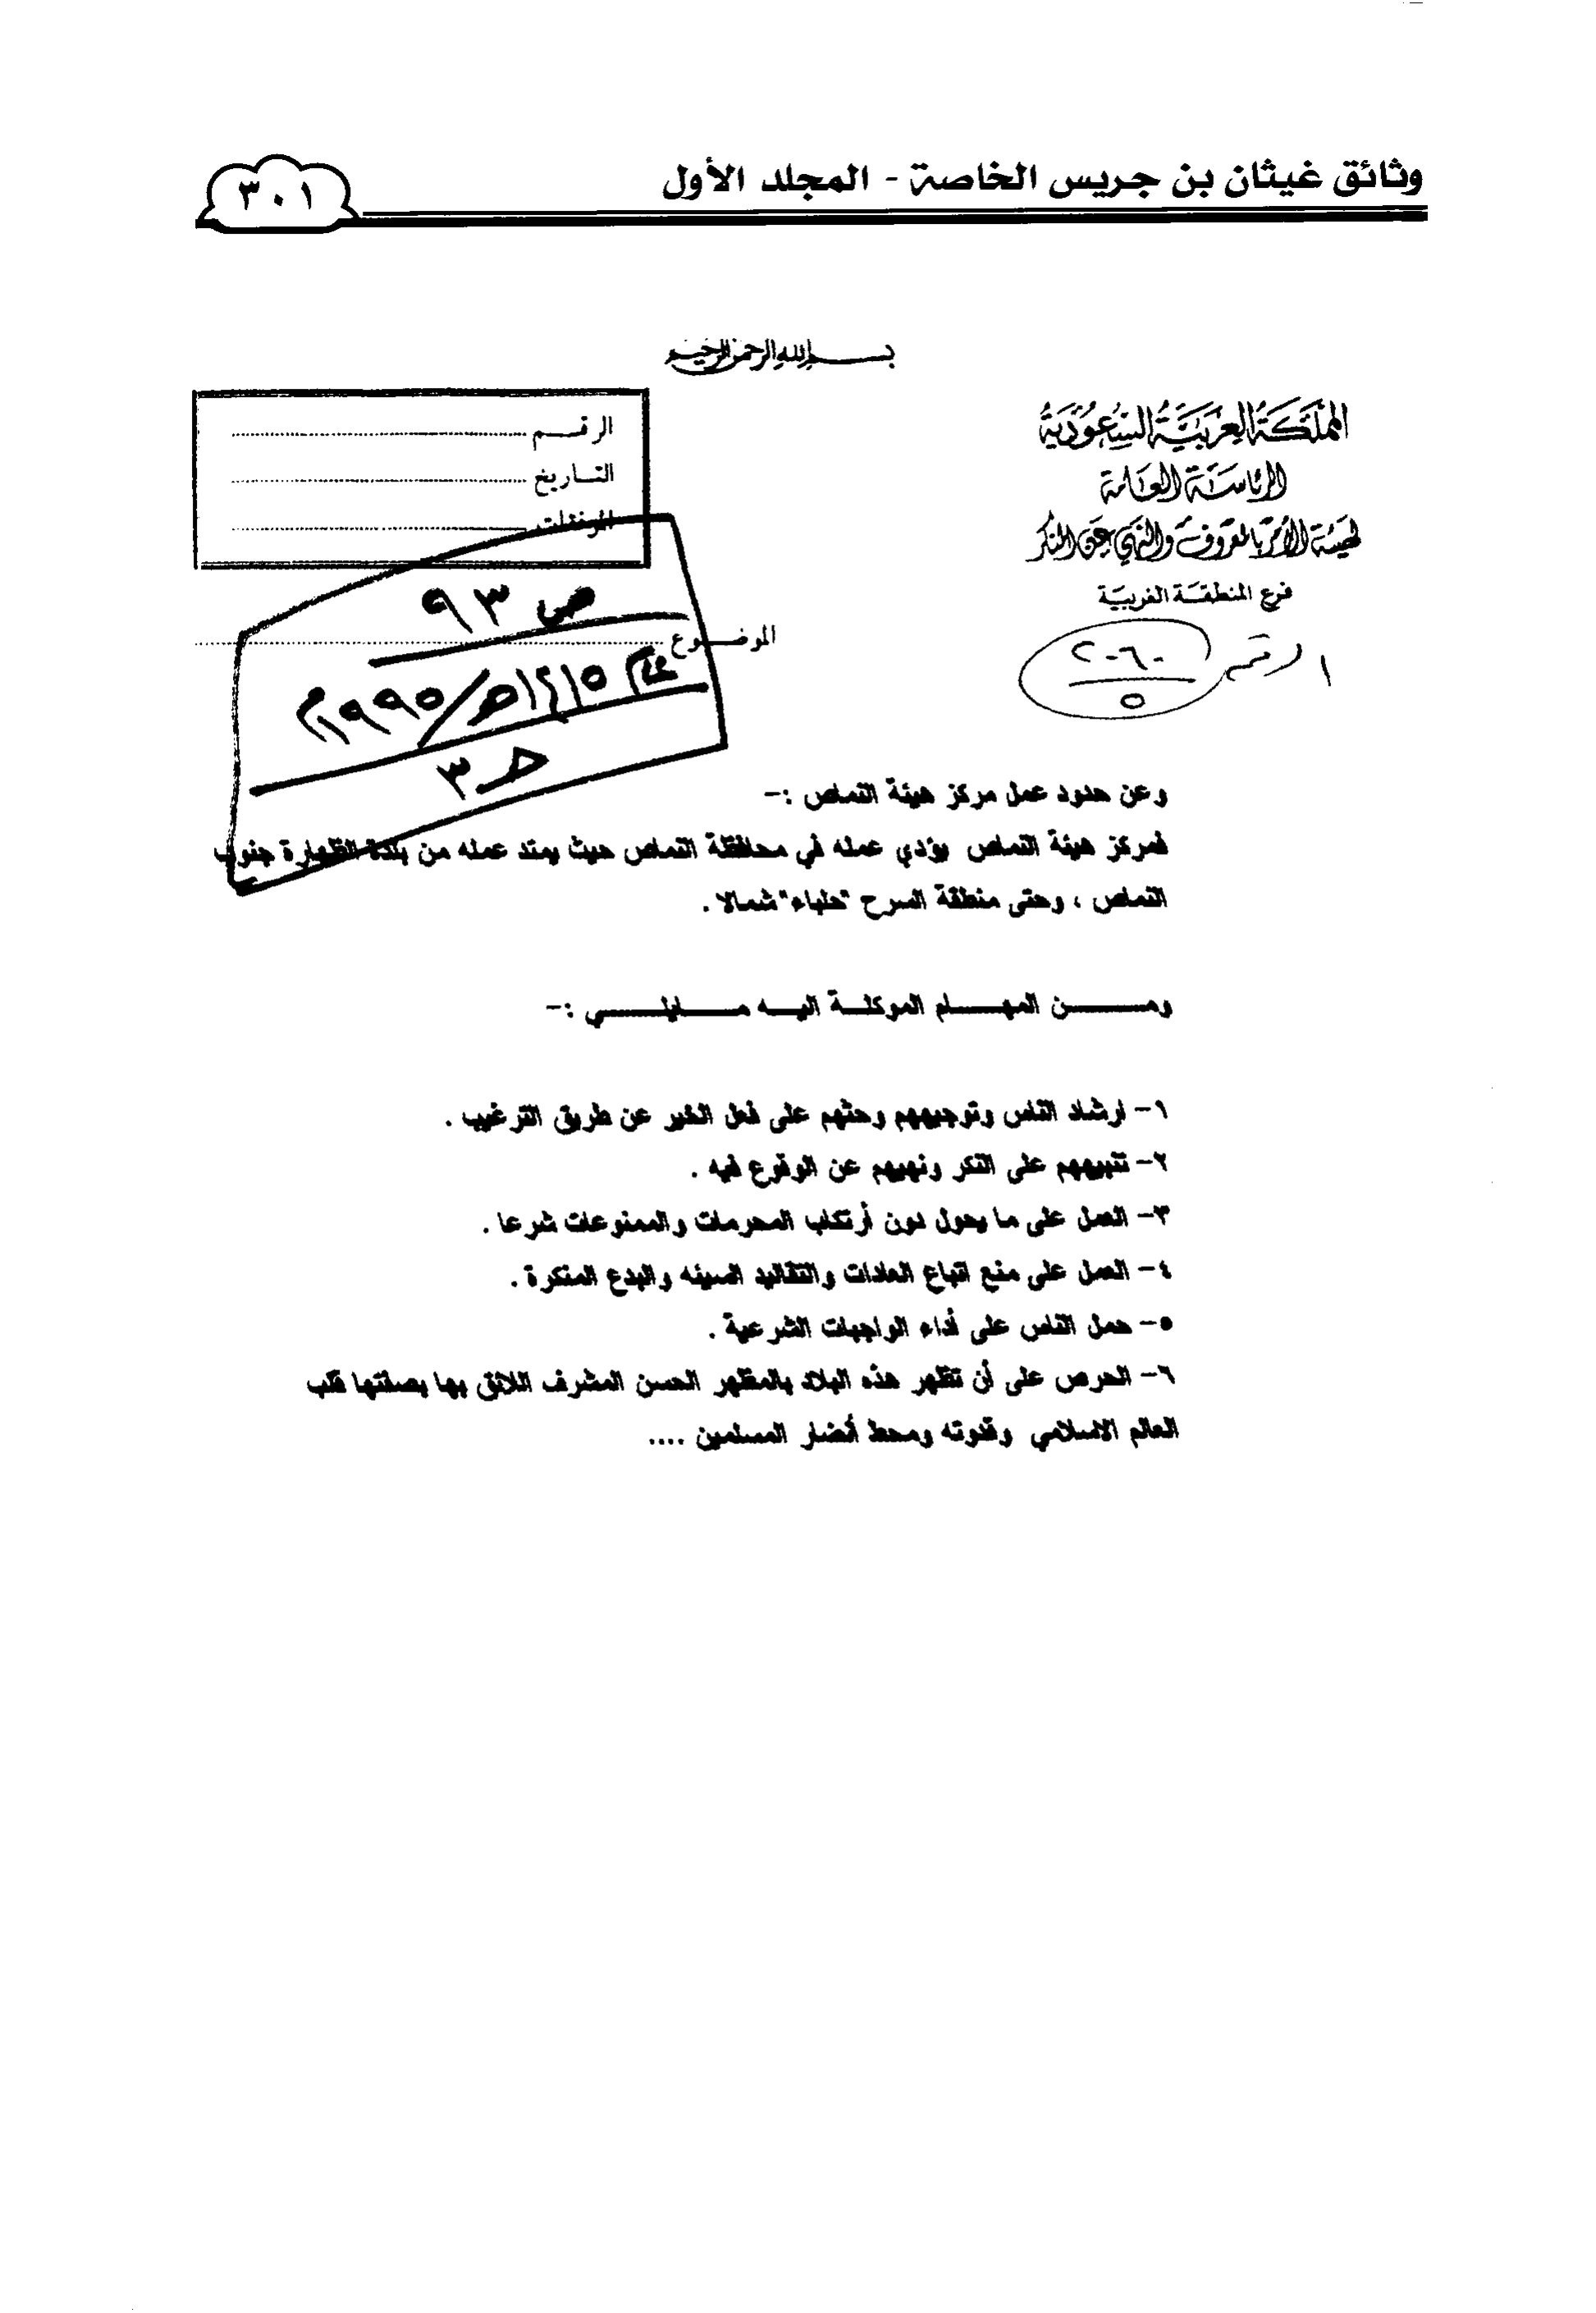 وثائق غيثان بن جريس الخاصة - المجلد الأول
٣٠١
بسم الله الرحمن الرحيم
المملكة العربية السعودية
الرئاسة العامة
لهيئة الأمر بالمعروف والنهي عن المنكر
فرع المنطقة الغربية
الرقم
التاريخ
المرفقات
الموضوع
ص ٩٣
عام ١٤١٥هـ/١٩٩٥م
حـ ٣
وعن حدود عمل مركز هيئة النماص :-
فمركز هيئة النماص يؤدي عمله في محافظة النماص حيث يمتد عمله من بلدة الظهارة جنوب
النماص ، وحتى منطقة السرح "حلباء" شمالا .
ومن المهام الموكلة اليه مايلي :-
١- ارشاد الناس وتوجيههم وحثهم على فعل الخير عن طريق الترغيب .
٢- تنبيههم على النكر ونهيهم عن الوقوع فيه .
٣- العمل على ما يحول دون أرتكاب المحرمات والممنوعات شرعا .
٤- العمل على منع اتباع العادات والتقاليد السيئه والبدع المنكرة .
٥- حمل الناس على أداء الواجبات الشرعية .
٦- الحرص على أن تظهر هذه البلاد بالمظهر الحسن المشرف اللائق بها بصفتها قلب
العالم الاسلامي وقدوته ومحط أنضار المسلمين ....